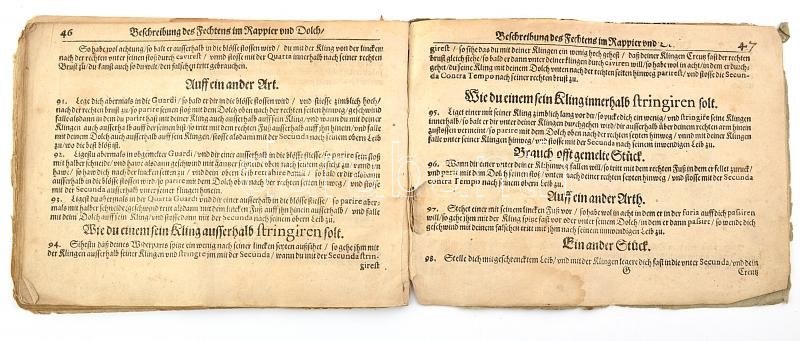 46 Beschreibung des Fechtens im Rappier vnd Dolch/
So habe wol achtung/so halt er ausserhalb in die blösse stossen wird/ du mit der Kling von der lincken
nach der rechten vnter seinen stoß durch cavirest/ vnnd stosse mit der Quarta innerhalb nach seiner rechten
Brust zu/ du kanst auch so du wilt/ den falschen tritt gebrauchen.
Auff ein ander Art.
91. Lege dich abermals in die Guardi/ so bald er dir in die blösse stossen wird/ vnd stiesse zimblich hoch/
nach der rechten brust zu/ so parire seinen stoß mit dem Dolch oben nach der rechten seiten hinweg/ geschwind
falle alsdann in dem du parirt hast mit deiner Kling auch ausserhalb auff sein Kling/ vnd wann du mit deiner
Klingen auch ausserhalb auff der seinen bist/ so tritt mit dem rechten Fuß ausserhalb auff jhn hinein/ vnd falle
mit deinem Dolch auch ausserhalb auff sein Klingen/ stosse alsdann mit der Secunda nach seinem obern Leib
zu/ wo die best blöß ist.
92. Ligestu abermals in obgemelter Guardi/ vnd dir einer ausserhalb in die blösse stiesse/ so parire sein stoß
mit halber schneide/ vnd
haw/ so
blösse stossen wird/ so parire mit dem Dolch oben nach der rechten seiten hinweg/ vnd stosse
mit der Secunda ausserhalb vnter seiner klingen hinein.
93. Ligest du abermals in der Quarta Guardi vnd dir einer ausserhalb in die blösse stiesse/ so parire aber-
mals mit halber schneide/ geschwind mit dem rechten Fuß auff jhn hinein ausserhalb/ vnd falle
mit dem Dolch auff sein Kling/ vnd stosse dann mit der Secunda nach seinem obern Leib zu.
Wie du einem sein Kling ausserhalb stringiren solt.
94. Sihestu daß deines Widerparts spitz ein wenig nach seiner lincken seiten ausstehet/ so gehe jhm mit
der Klingen ausserhalb seiner Klingen vnd stringire jm mit der Secunda/ wann du mit der Secunda strin-
girest
Beschreibung des Fechtens im Rappier vnd 47
girest/ so sihe das du mit deiner Klingen ein wenig hoch gehest/ daß deiner Klingen Creutz fast der rechten
brust gleich stehe/ so bald er dann vnter deiner klingen durch caviren will/ so habe wol in acht/ in dem er durch-
gehet/ du seine Kling mit deinem Dolch vnten nach der rechten seiten hinweg parirest/ vnd stosse die Secun-
da Contra Tempo nach seiner rechten brust zu.
Wie du einem sein Kling innerhalb stringiren solt.
95. Ligt einer mit seiner Kling zimblich lang vor dir/ so rucke dich ein wenig/ vnd stringire seine Klingen
innerhalb/ so bald er dir vnter deiner Klingen durchgehen wird/ dir ausserhalb vber deinen rechten arm hinein
zustossen vermeint/ so parire mit dem Dolch oben nach der rechten seiten hinweg/ vnd
hinein/ vnd stosse mit der Secunda nach seinem inwendigen Leib zu.
Brauch offt gemelte Stück.
96. Wann dir einer vnter deiner Klingen hinweg fallen will/ so tritt mit dem rechten Fuß in dem er fellet zuruck/
vnd parir mit dem Dolch seinen stoß/ vnten nach deiner rechten seiten hinweg/ vnd stosse mit der Secunda
Contra Tempo nach seinem obern Leib zu.
Auff ein ander Arth.
97. Stehet einer mit seinem lincken Fuß vor/ so habe wol in acht in dem er in der furia auff dich passiren
will/ so gehe jhm mit der Kling spitze fast vor oder vnter seinen Dolch/ in dem er dann passirt/ so wende dich
geschwind mit deinem falschen tritt mit jhm nach seinem innwendigen Leib zu.
Ein ander Stück.
98. Stelle dich mit geschrencktem Leib/ vnd mit der Klingen legere dich fast in die vnter Secunda/ vnd dein
G Creutz